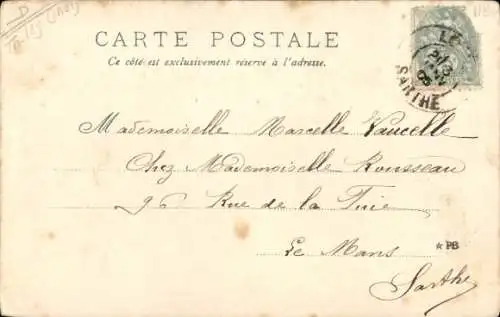 CARTE POSTALE
Ce côté est exclusivement réservé à l'adresse.
LE
SARTHE
Mademoiselle Marcelle Vaucelle
Chez Mademoiselle Rousseau
96 Rue de la
Le Mans
★PB
Sarthe